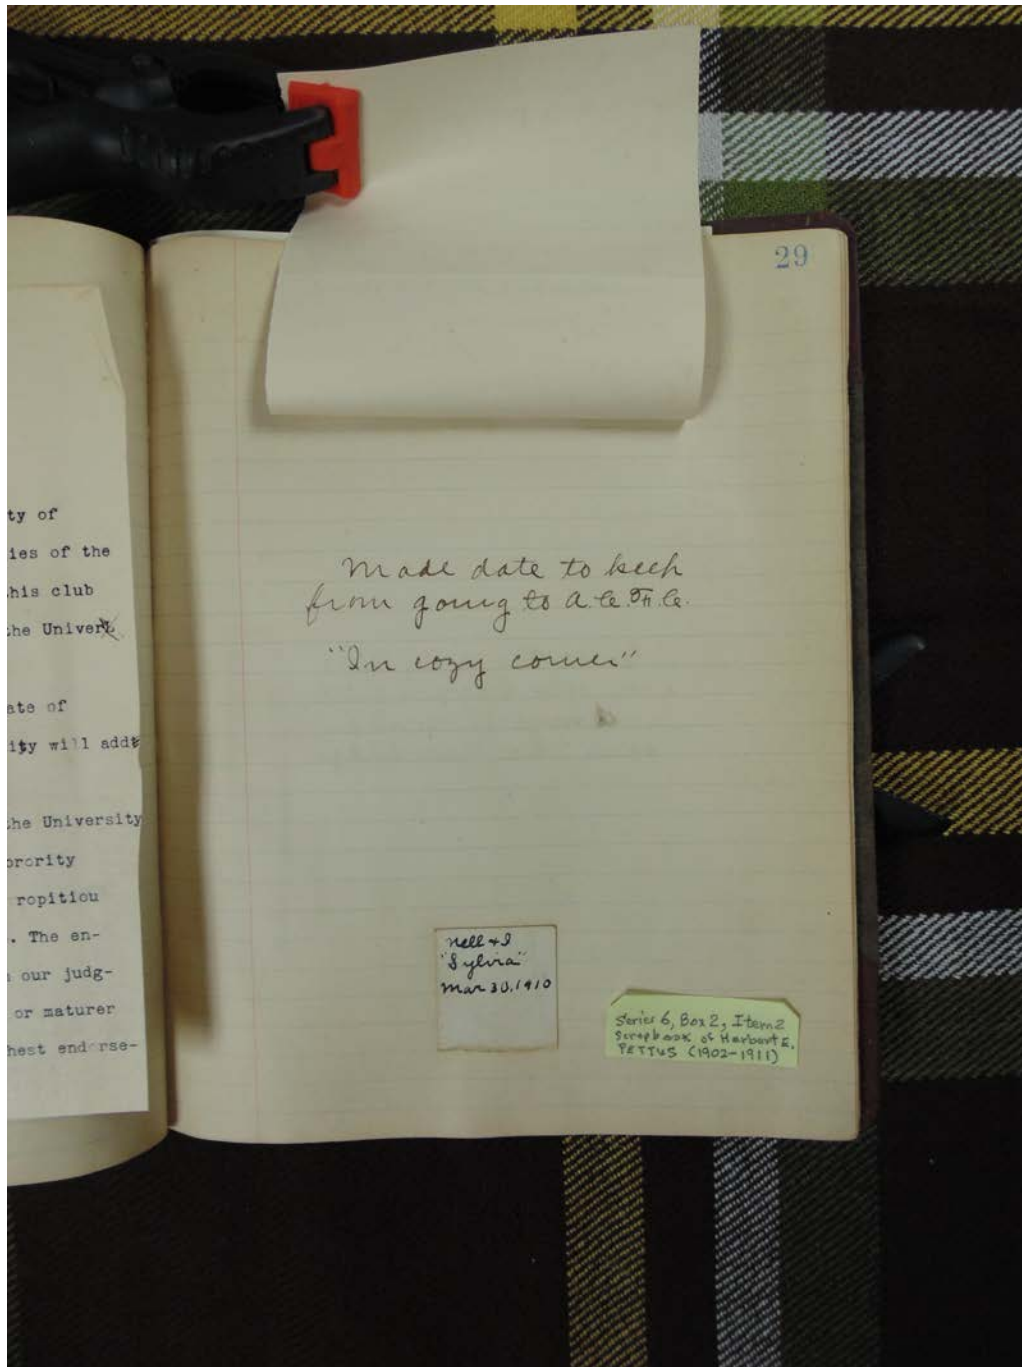 ty of
ies of the
his club
the Univer
ate of
ity will add
the University
orority
ropitiou
. The en-
our judg-
or maturer
hest endorse-
29
Made date to keep
from going to
"In cozy corner"
Nell & I
"Sylvia"
Mar 30, 1910
Series 6, Box 2, Item 2
Scrapbook of Harbert E.
PETTUS (1902-1911)